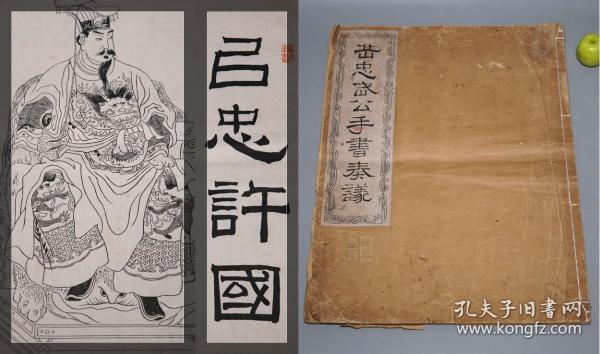 㠯忠許國
岳忠武公手書奏議
孔夫子旧书网
www.kongfz.com